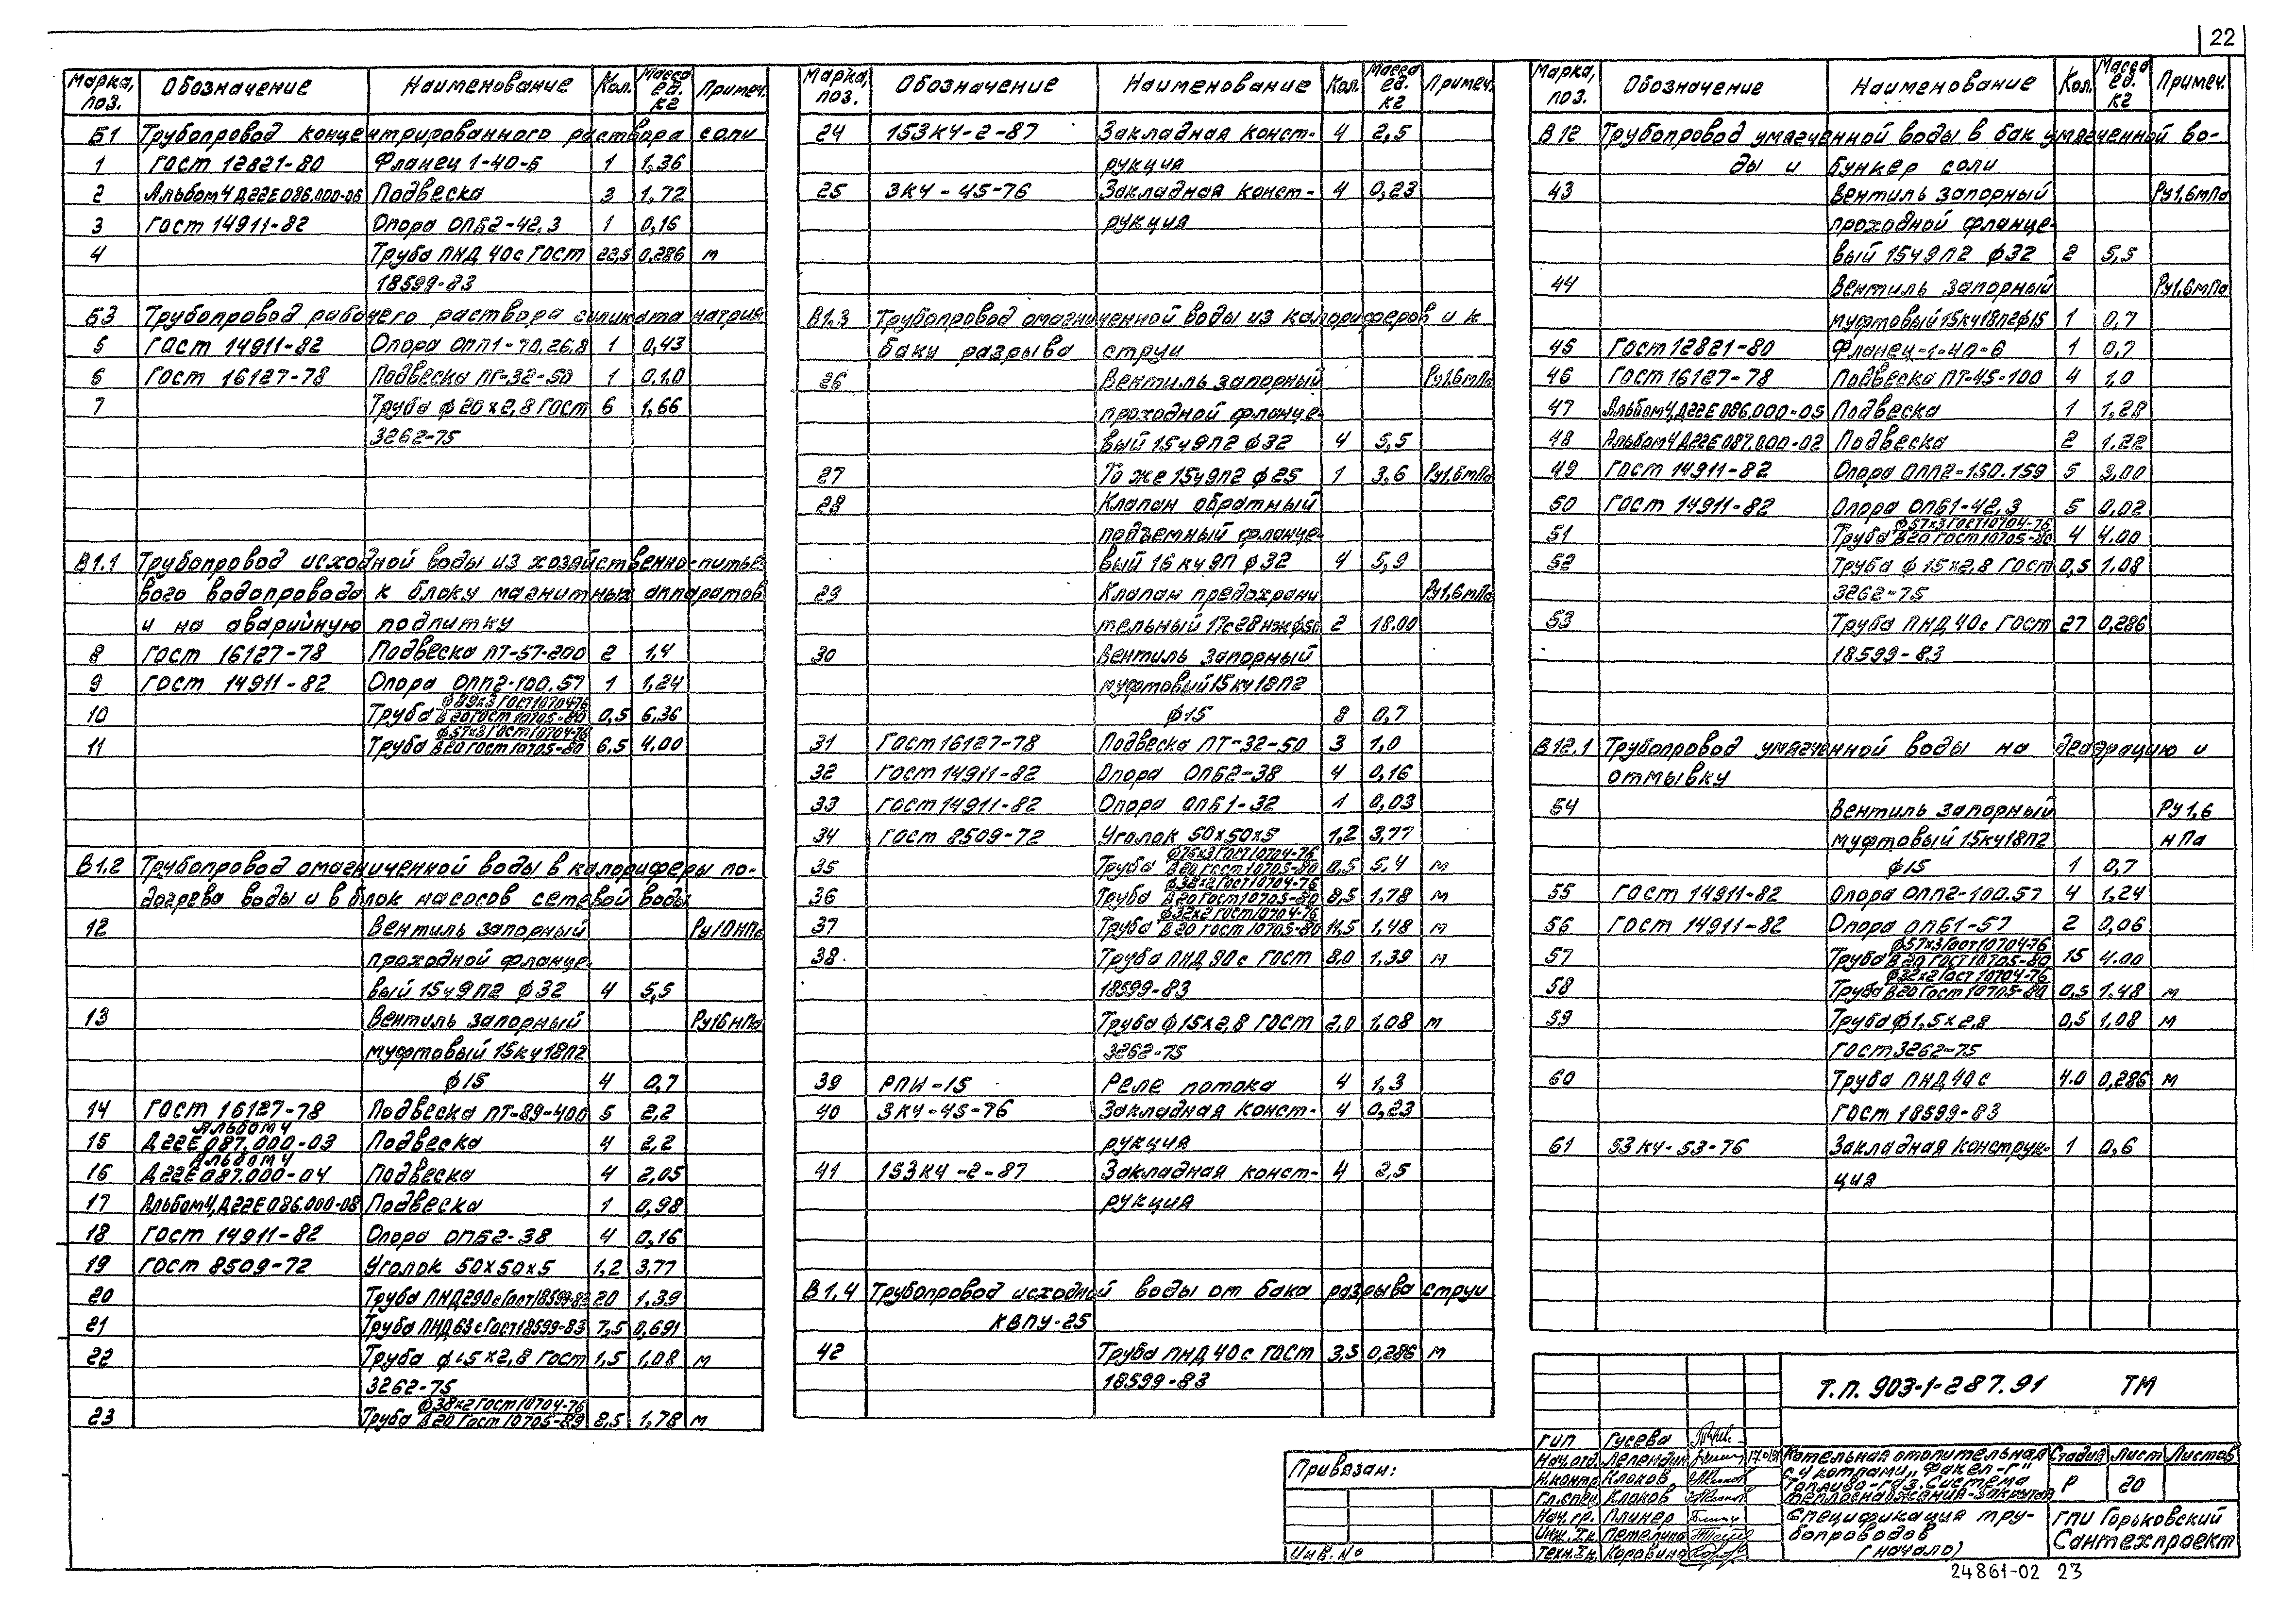 22
Марка, поз. Обозначение Наименование Кол. Масса ед. кг Примеч.
Б1 Трубопровод концентрированного раствора соли
1 Гост 12821-80 Фланец 1-40-6 1 1,36
2 Альбом 4 Д22Е086.000-06 Подвеска 3 1,72
3 Гост 14911-82 Опора ОПБ2-42.3 1 0,16
4 Труба ПНД 40с ГОСТ 22,5 0,286 м
18599-83
Б3 Трубопровод рабочего раствора силиката натрия
5 Гост 14911-82 Опора ОПП1-70.26.8 1 0,43
6 Гост 16127-78 Подвеска ПГ-32-50 1 0,1,0
7 Труба ф20х2,8 ГОСТ 6 1,66
3262-75
В1.1 Трубопровод исходной воды из хозяйственно-питье-
вого водопровода к блоку магнитных аппаратов
и на аварийную подпитку
8 Гост 16127-78 Подвеска ПТ-57-200 2 1,4
9 Гост 14911-82 Опора ОПП2-100.57 1 1,24
10 Труба ф89х3 ГОСТ10704-76 В20 ГОСТ 10705-80 0,5 6,36
11 Труба ф57х3 ГОСТ10704-76 В20 ГОСТ 10705-80 6,5 4,00
В1.2 Трубопровод омагниченной воды в калориферы по-
догрева воды и в блок насосов сетевой воды
12 Вентиль запорный Ру10НПа
проходной фланце-
вый 15ч9п2 ф32 4 5,5
13 Вентиль запорный Ру16нПа
муфтовый 15кч18п2
ф15 4 0,7
14 Гост 16127-78 Подвеска ПТ-89-400 5 2,2
15 Альбом 4 Д22Е087.000-03 Подвеска 4 2,2
16 Альбом 4 Д22Е087.000-04 Подвеска 4 2,05
17 Альбом 4, Д22Е086.000-08 Подвеска 1 0,98
18 Гост 14911-82 Опора ОПБ2-38 4 0,16
19 Гост 8509-72 Уголок 50х50х5 1,2 3,77
20 Труба ПНД290с Гост18599-83 20 1,39
21 Труба ПНД63с Гост18599-83 7,5 0,691
22 Труба ф15х2,8 Гост 1,5 1,08 м
3262-75
23 Труба ф38х2 Гост10704-76 В20 Гост 10705-89 8,5 1,78 м
Марка, поз. Обозначение Наименование Кол. Масса ед. кг Примеч.
24 153К4-2-87 Закладная конст- 4 2,5
рукция
25 3К4-45-76 Закладная конст- 4 0,23
рукция
В1.3 Трубопровод омагниченной воды из калориферов и к
баку разрыва струи
26 Вентиль запорный Ру1,6мПа
проходной фланце-
вый 15ч9п2 ф32 4 5,5
27 То же 15ч9п2 ф25 1 3,6 Ру1,6мПа
28 Клапан обратный
подъемный фланце-
вый 16кч9п ф32 4 5,9
29 Клапан предохрани Ру1,6мПа
тельный 17с28нжф50 2 18.00
30 Вентиль запорный
муфтовый 15кч18п2
ф15 8 0,7
31 Гост 16127-78 Подвеска ПТ-32-50 3 1,0
32 Гост 14911-82 Опора ОПБ2-38 4 0,16
33 Гост 14911-82 Опора ОПБ1-32 1 0,03
34 Гост 8509-72 Уголок 50х50х5 1,2 3,77
35 Труба ф76х3 ГОСТ10704-76 В20 Гост10705-80 8,5 5,4 м
36 Труба ф38х2 Гост10704-76 В20 Гост10705-80 8,5 1,78 м
37 Труба ф32х2 гост10704-76 В20 Гост 10705-80 14,5 1,48 м
38 Труба ПНД 90с ГОСТ 8,0 1,39 м
18599-83
Труба ф15х2,8 ГОСТ 2,0 1,08 м
3262-75
39 РПИ-15 Реле потока 4 1,3
40 3К4-45-76 Закладная конст- 4 0,23
рукция
41 153К4-2-87 Закладная конст- 4 2,5
рукция
В1.4 Трубопровод исходной воды от бака разрыва струи
К ВПУ-25
42 Труба ПНД 40с ГОСТ 3,5 0,286 м
18599-83
Марка, поз. Обозначение Наименование Кол. Масса ед. кг Примеч.
В12 Трубопровод умягченной воды в бак умягченной во-
ды и бункер соли
43 Вентиль запорный Ру1,6мПа
проходной фланце-
вый 15ч9п2 ф32 2 5,5
44 Вентиль запорный Ру1,6мПа
муфтовый 15кч18п2ф15 1 0,7
45 Гост 12821-80 Фланец-1-40-6 1 0,7
46 Гост 16127-78 Подвеска ПТ-45-100 4 1,0
47 Альбом 4, Д22Е086.000-05 Подвеска 1 1,28
48 Альбом 4 Д22Е087.000-02 Подвеска 2 1.22
49 Гост 14911-82 Опора ОПП2-150.159 5 3,00
50 Гост 14911-82 Опора ОПБ1-42.3 5 0,02
51 Труба ф57х3 ГОСТ10704-76 В20 ГОСТ 10705-80 4 4.00
52 Труба ф15х2,8 ГОСТ 0,5 1.08
3262-75
53 Труба ПНД 40с ГОСТ 27 0,286
18599-83
В12.1 Трубопровод умягченной воды на деаэрацию и
отмывку
54 Вентиль запорный Ру1,6
муфтовый 15кч18п2 нПа
ф15 1 0,7
55 Гост 14911-82 Опора ОПП2-100.57 4 1,24
56 Гост 14911-82 Опора ОПБ1-57 2 0,06
57 Труба ф57х3 Гост10704-76 В20 ГОСТ 10705-80 15 4.00
58 Труба ф32х2 Гост 10704-76 В20 Гост 10705-80 0,5 1.48 м
59 Труба ф1,5х2,8 0,5 1,08 м
Гост 3262-75
60 Труба ПНД 40с 4.0 0,286 м
Гост 18599-83
61 53К4-53-76 Закладная конструк- 1 0,6
ция
Т.П. 903-1-287.91 ТМ
Привязан:
Инв. №
ГИП Гусева
Нач.отд. Лепендин
Н.контр. Клоков
Гл.спец. Клоков
Нач.гр. Плинер
Инж.Iк. Петелина
Техн.Iк. Коровина
Котельная отопительная
с 4 котлами „Факел-Г"
Топливо-газ. Система
теплоснабжения-закрытая
Стадия Лист Листов
Р 20
Спецификация тру-
бопроводов
(начало)
ГПИ Горьковский
Сантехпроект
24861-02 23